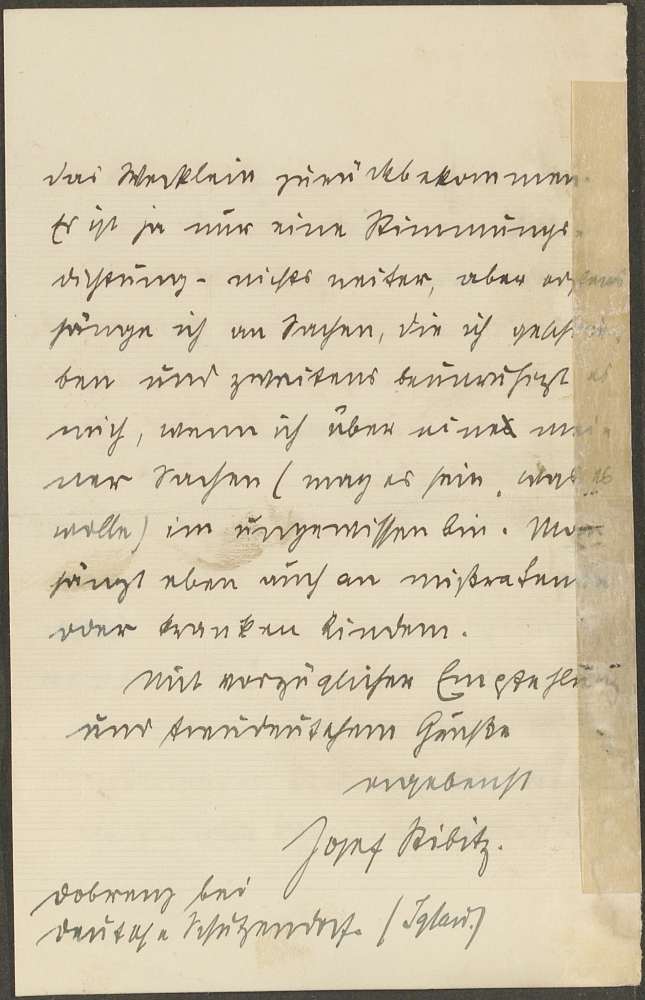 das Werklein zurückbekommen.
Er ist ja nur eine Stimmungs-
dichtung - nichts weiter, aber erstens
hänge ich an Sachen, die ich geschrie-
ben und zweitens beunruhigt es
mich, wenn ich über eine mei-
ner Sachen (mag es sein, was es
wolle) im ungewissen bin. Man
hängt eben auch an mißratenen
oder kranken Kindern.
Mit vorzüglicher Empfehlung
und treudeutschem Gruße
ergebenst
Josef Stibitz.
Dobrenz bei
Deutsch Schützendorf. (Iglau.)